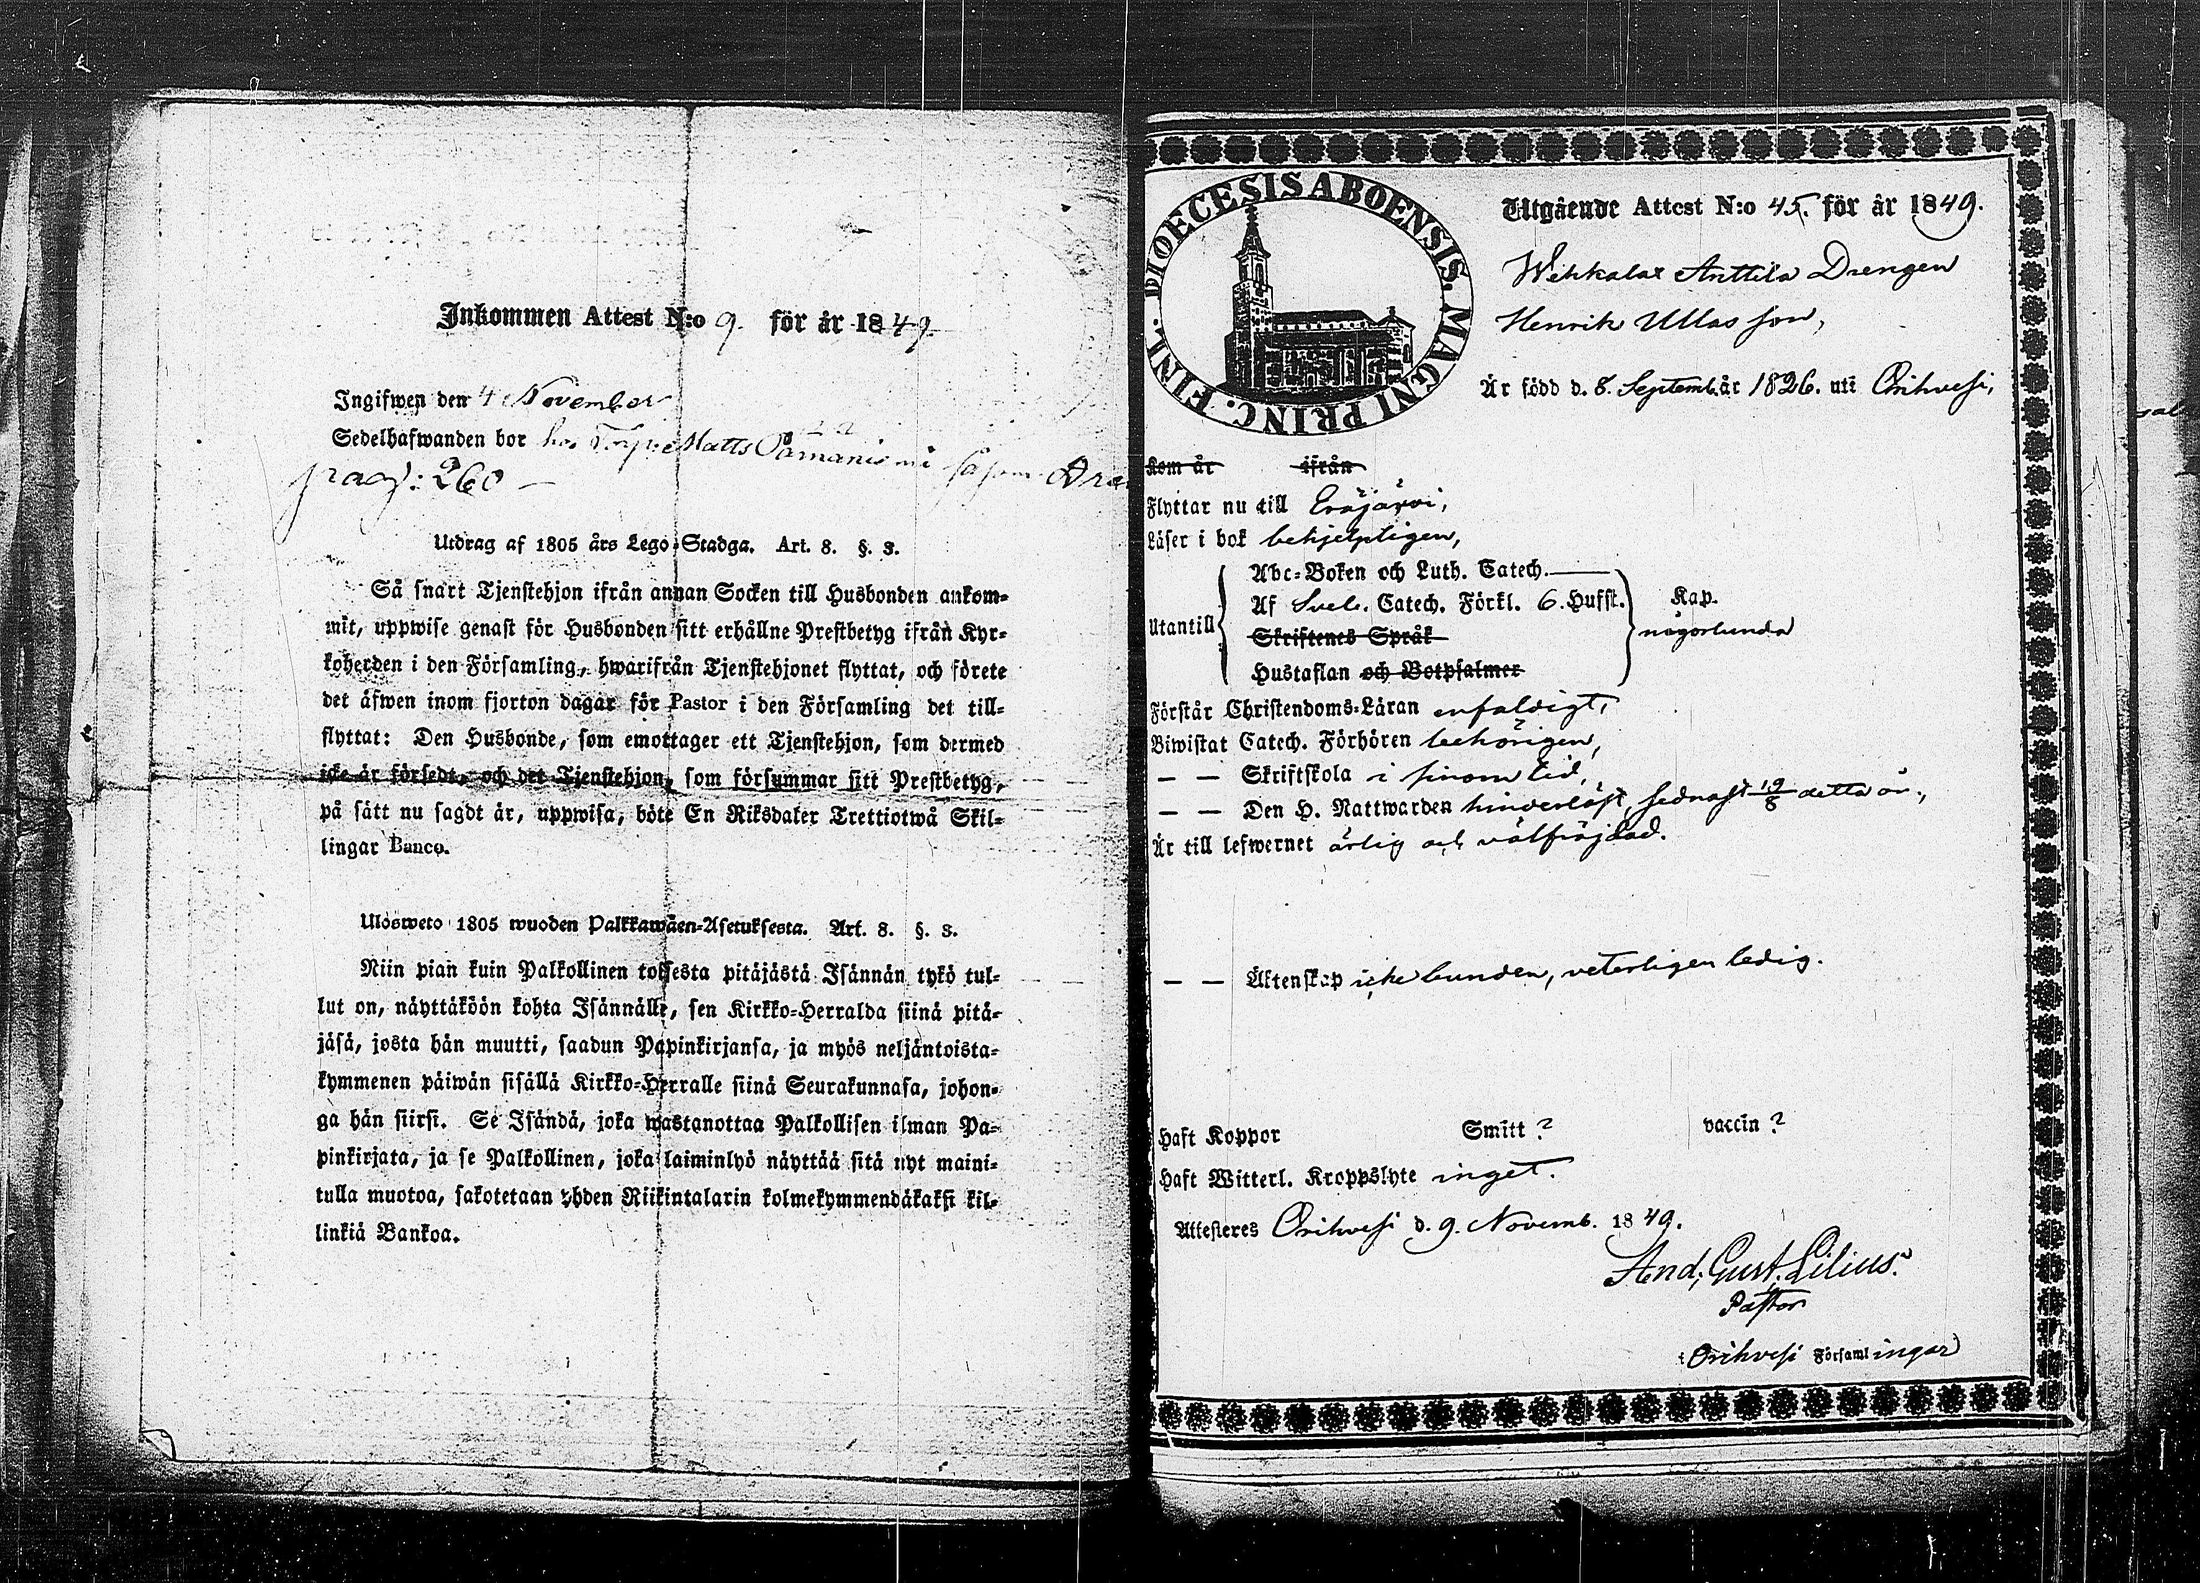 Inkommen Attest N:o 9. för år 1849.
Ingifwen den 4 November
Sedelhafwanden bor hos Matts såsom
pag: 260 —
Utdrag af 1805 års Lego-Stadga. Art. 8. §. 3.
Så snart Tjenstehjon ifrån annan Socken till Husbonden ankom-
mit, uppwise genast för Husbonden sitt erhållne Prestbetyg ifrån Kyr-
koherden i den Församling, hwarifrån Tjenstehjonet flyttat, och förete
det äfwen inom fjorton dagar för Pastor i den Församling det till-
flyttat: Den Husbonde, som emottager ett Tjenstehjon, som dermed
icke är försedt, och det Tjenstehjon, som försummar sitt Prestbetyg,
på sätt nu sagdt är, uppwisa, böte En Riksdaler Trettiotwå Skil-
lingar Banco.
Ulosweto 1805 wuoden Palkkawäen-Asetuksesta. Art. 8. §. 3.
Niin pian kuin Palkollinen toisesta pitäjästä Isännän tykö tul-
lut on, näyttäköön kohta Isännälle, sen Kirkko-Herralda siinä pitä-
jäsä, josta hän muutti, saadun Papinkirjansa, ja myös neljäntoista-
kymmenen päiwän sisällä Kirkko-Herralle siinä Seurakunnasa, johon-
ga hän siirsi. Se Isändä, joka wastanottaa Palkollisen ilman Pa-
pinkirjata, ja se Palkollinen, joka laiminlyö näyttää sitä nyt maini-
tulla muotoa, sakotetaan yhden Riikintalarin kolmekymmendäkaksi kil-
linkiä Bankoa.
DIOECESIS ABOENSIS. MAGNI PRINC. FINL.
Utgående Attest N:o 45. för år 1849.
Wehkalax Anttila Drengen
Henrik Ullas son,
Är född d. 8. Septemb. år 1826. uti Orihvesi,
Kom år ifrån
Flyttar nu till Eräjärvi,
Läser i bok behjelpligen,
Utantill
Abc-Boken och Luth. Catech.
Af Sveb. Catech. Förkl. 6. Hufst. Kap.
Skriftenes Språk
någorlunda
Hustaflan och Botpsalmer
Förstår Christendoms-Läran enfaldigt,
Biwistat Catech. Förhören behörigen,
— — Skriftskola i sinom tid,
— — Den H. Nattwarden hinderlöst, sednast 19/8 detta år,
Är till lefwernet ärlig och välfräjdad.
— — Äktenskap icke bunden, veterligen ledig.
Haft Koppor Smitt? vaccin?
Haft Witterl. Kroppslyte inget.
Attesteres Orihvesi d. 9. Novemb. 1849.
And. Gust. Lilius.
Pastor
i Orihvesi Församlingar